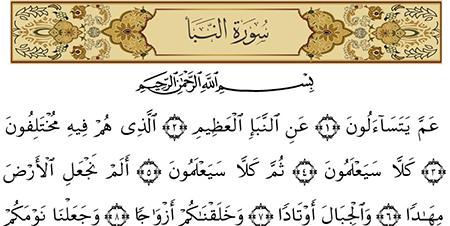 سُورَةُ النَّبَإِ
بِسْمِ اللَّهِ الرَّحْمَٰنِ الرَّحِيمِ
عَمَّ يَتَسَآءَلُونَ ﴿١﴾ عَنِ النَّبَإِ الْعَظِيمِ ﴿٢﴾ الَّذِى هُمْ فِيهِ مُخْتَلِفُونَ
﴿٣﴾ كَلَّا سَيَعْلَمُونَ ﴿٤﴾ ثُمَّ كَلَّا سَيَعْلَمُونَ ﴿٥﴾ أَلَمْ نَجْعَلِ الْأَرْضَ
مِهَٰدًا ﴿٦﴾ وَالْجِبَالَ أَوْتَادًا ﴿٧﴾ وَخَلَقْنَٰكُمْ أَزْوَاجًا ﴿٨﴾ وَجَعَلْنَا نَوْمَكُمْ